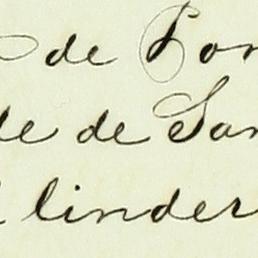 de Por
de de San
linder